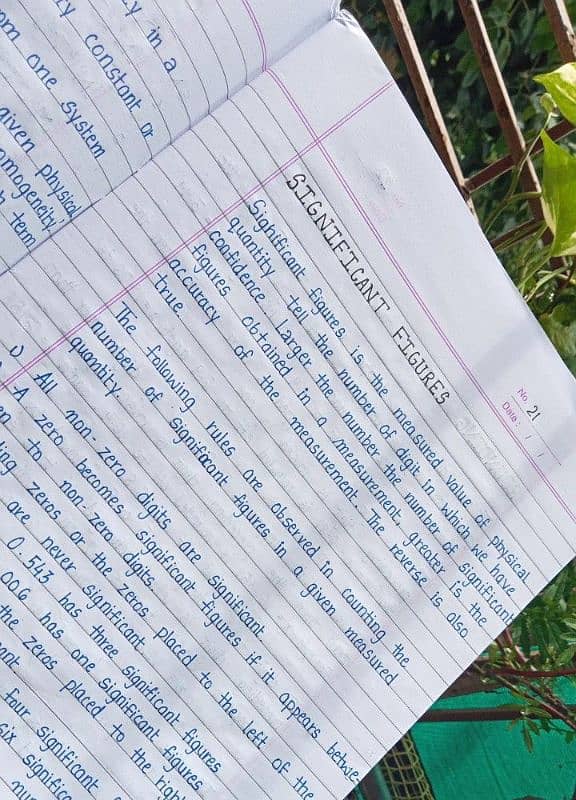 y in a
ry constant or
om one system
given physical
omogeneity
h term
No. 21
Date: / /
SIGNIFICANT FIGURES
Significant figures is the measured value of physical
quantity tell the number of digit in which we have
confidence larger the number the number of significant
figures obtained in a measurement, greater is the
accuracy of the measurement. The reverse is also
true.
The following rules are observed in counting the
number of significant figures in a given measured
quantity.
) All non-zero digits are significant
A zero becomes significant figures if it appears betwe-
en to non-zero digits
ing zeros or the zeros placed to the left of the
are never significant
0.543 has three significant figures
006 has one significant figures
the zeros placed to the right
ant
four significant
six significa
nu